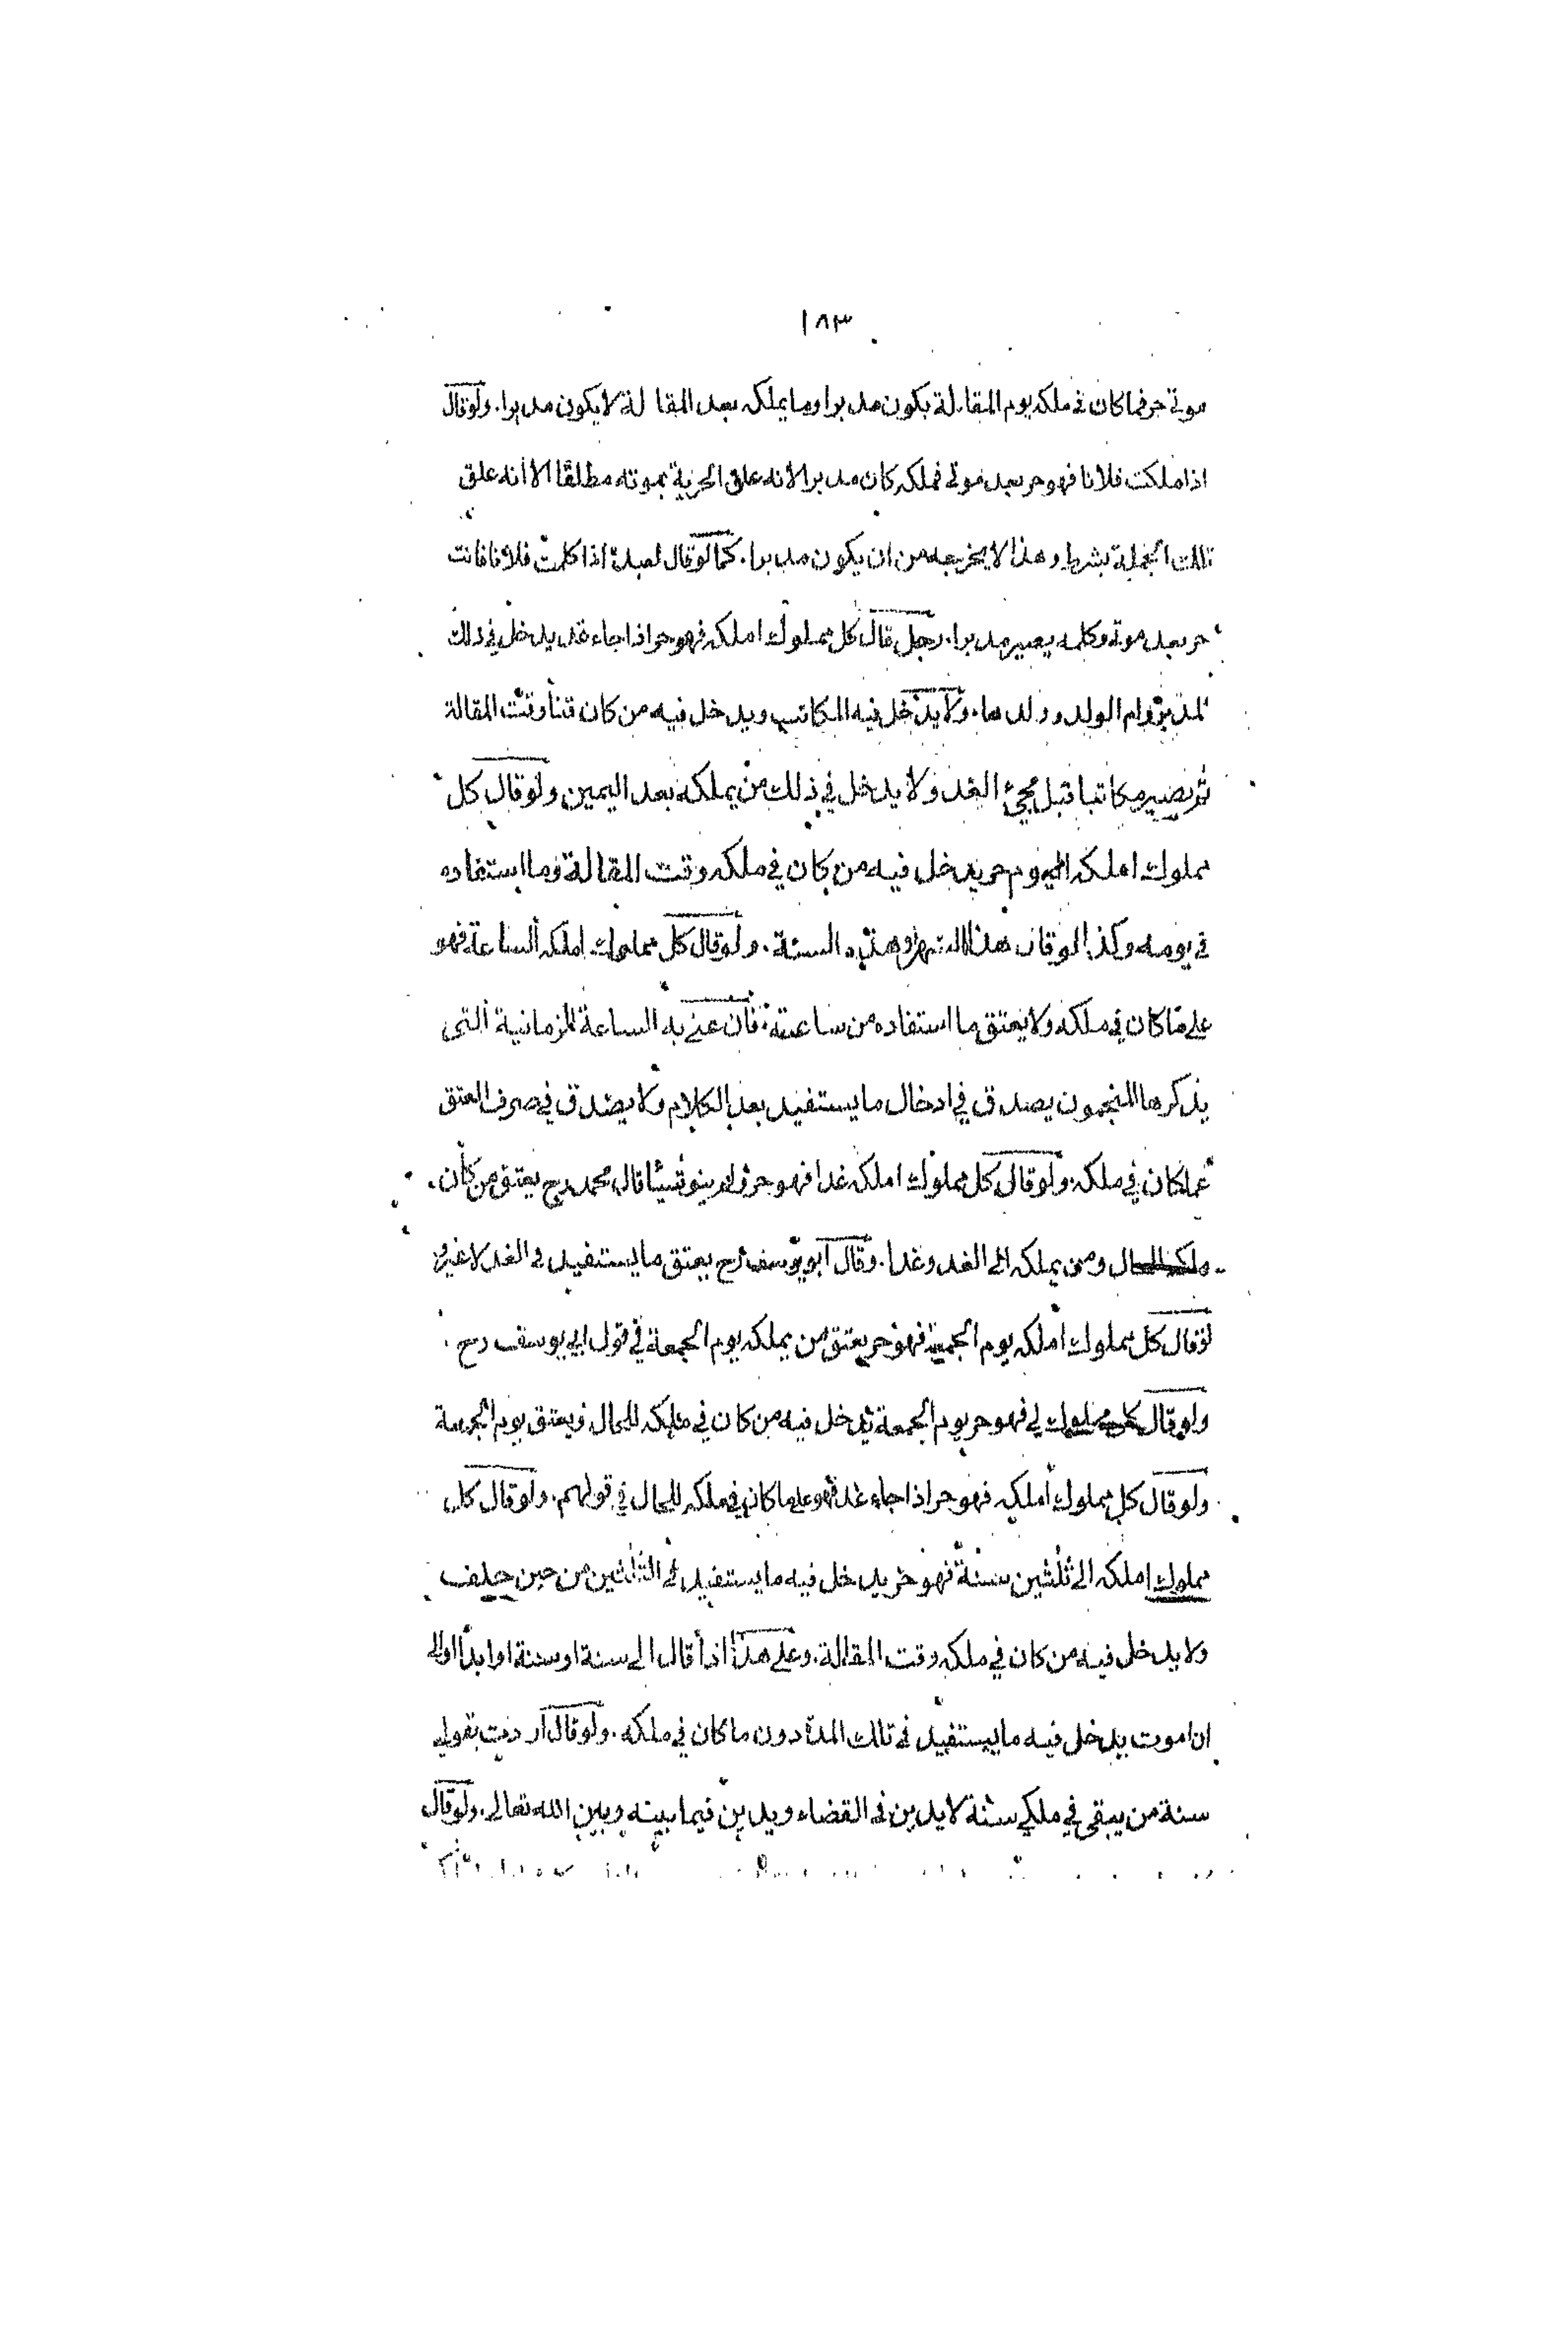 ١٨٣
موتي حر فما كان في ملكه يوم المقالة يكون مدبرا وما يملكه بعد المقالة لا يكون مدبرا . ولو قال
اذا ملكت فلانا فهو حر بعد موتي فملكه كان مدبرا لانه علق الحرية بموته مطلقا الا انه علق
تلك الجملة بشرط وهذا لا يخرجه من ان يكون مدبرا . كما لو قال لعبده اذا كلمت فلانا فانت
حر بعد موته وكلمه يصير مدبرا . رجل قال كل مملوك املكه فهو حر اذا جاء غد يدخل في ذلك
المدبر وام الولد وولدها . ولا يدخل فيه المكاتب ويدخل فيه من كان قنا وقت المقالة
ثم يصير مكاتبا قبل مجيئ الغد ولا يدخل في ذلك من يملكه بعد اليمين ولو قال كل
مملوك املكه اليوم حر يدخل فيه من كان في ملكه وقت المقالة وما استفاده
في يومه وكذا لو قال هذا الشهر او هذه السنة . ولو قال كل مملوك املكه الساعة فهو
على ما كان في ملكه ولا يعتق ما استفاده من ساعته . فان عنى به الساعة الزمانية التى
يذكرها المنجمون يصدق في ادخال ما يستفيد بعد الكلام ولا يصدق في صرف العتق
عما كان في ملكه . ولو قال كل مملوك املكه غدا فهو حر ولم ينو شيئا قال محمد رح يعتق من كان
ملكه للحال ومن يملكه الى الغد وغدا . وقال ابو يوسف رح يعتق ما يستفيد في الغد لا غير و
لو قال كل مملوك املكه يوم الجمعة فهو حر يعتق من يملكه يوم الجمعة في قول ابي يوسف رح .
ولو قال كل مملوك لي فهو حر يوم الجمعة يدخل فيه من كان في ملكه للحال ويعتق يوم الجمعة
ولو قال كل مملوك املكه فهو حر اذا جاء غد فهو على ما كان في ملكه للحال في قولهم . ولو قال كل
مملوك املكه الى ثلثين سنة فهو حر يدخل فيه ما يستفيد في الثلثين من حين حلف
ولا يدخل فيه من كان في ملكه وقت المقالة . وعلى هذا اذا قال الى سنة او سنة او ابدا او الى
ان اموت يدخل فيه ما يستفيد في تلك المدة دون ما كان في ملكه . ولو قال اردت بقولي
سنة من يبقى في ملكي سنة لا يدين في القضاء ويدين فيما بينه وبين الله تعالى . ولو قال